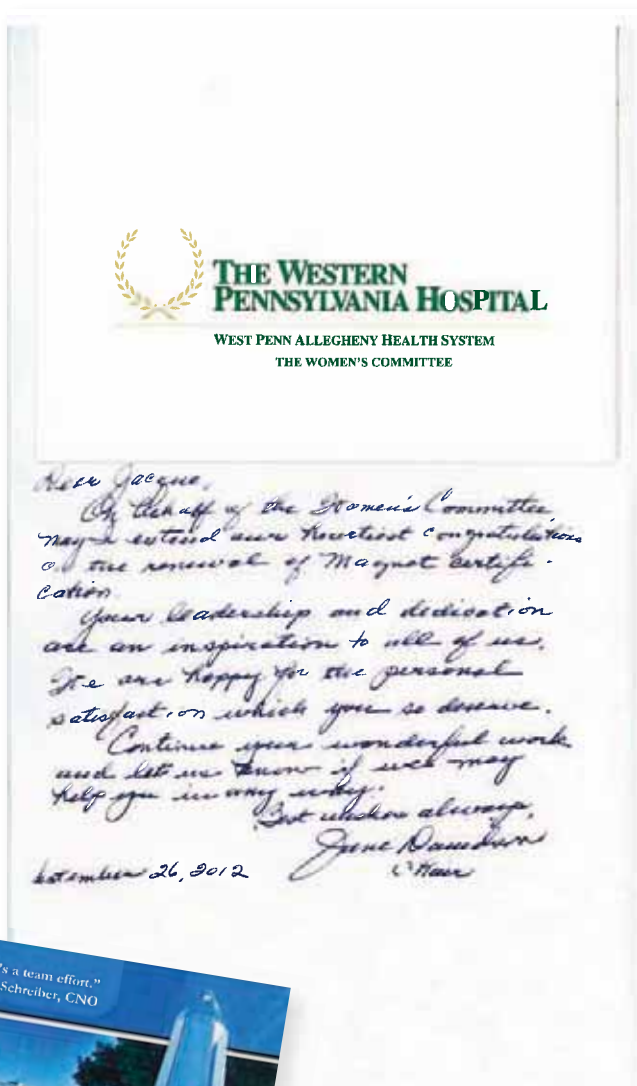 THE WESTERN
PENNSYLVANIA HOSPITAL
WEST PENN ALLEGHENY HEALTH SYSTEM
THE WOMEN'S COMMITTEE
Dear Jacque,
On behalf of the Women's Committee
may I extend our heartiest congratulations
on the renewal of Magnet certifi-
cation.
Your leadership and dedication
are an inspiration to all of us.
We are happy for the personal
satisfaction which you so deserve.
Continue your wonderful work
and let us know if we may
help you in any way.
Best wishes always,
Jane Davidson
Chair
September 26, 2012
's a team effort."
Schreiber, CNO